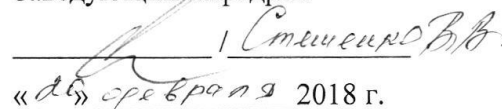 / Стешенко В.В.
«26» февраля 2018 г.